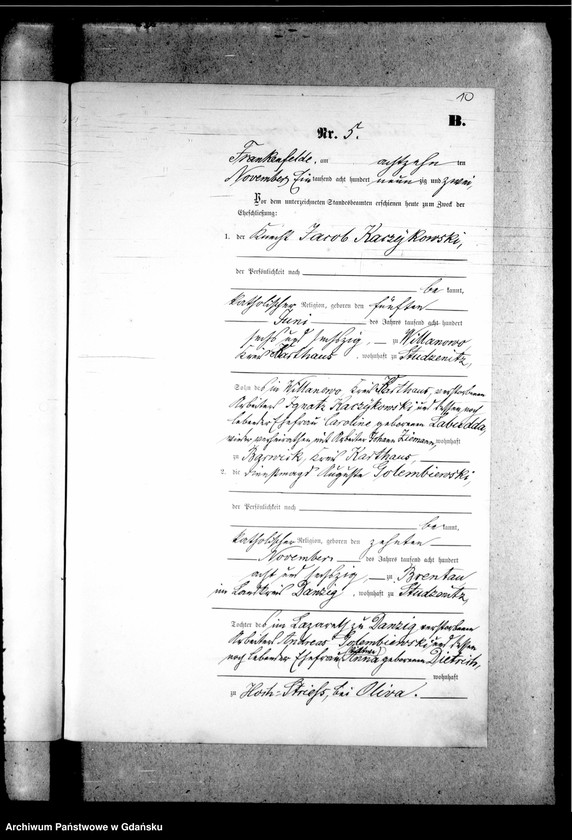 10
B.
Nr. 5.
Frankenfelde, am achtzehn ten
November Ein tausend acht hundert neun zig und zwei
Vor dem unterzeichneten Standesbeamten erschienen heute zum Zweck der
Eheschließung:
1. der Knecht Jacob Kaczykowski,
der Persönlichkeit nach
be kannt,
katholischer Religion, geboren den fünften
Juni des Jahres tausend acht hundert
sechs und sechszig, zu Wittanowo
Kreis Karthaus, wohnhaft zu Studzenitz,
Sohn des in Wittanowo, Kreis Karthaus, verstorbenen
Arbeiters Ignatz Kaczykowski und dessen noch
lebender Ehefrau Caroline geborenen Labudda,
wieder verheirathen mit Arbeiter Johann Ziemann, wohnhaft
zu Kreis Karthaus,
2. die Dienstmagd Auguste Golembiewski,
der Persönlichkeit nach
be kannt,
katholischer Religion, geboren den zehnten
November des Jahres tausend acht hundert
acht und sechszig, zu Brentau
im Landkreis Danzig, wohnhaft zu Studzenitz,
Tochter des im Lazareth zu Danzig verstorbenen
Arbeiters Andreas Golembiewski und dessen
noch lebender Ehefrau Anna geborenen Dietrich,
wohnhaft
zu Hoch-Striess, bei Oliva.
Archiwum Państwowe w Gdańsku